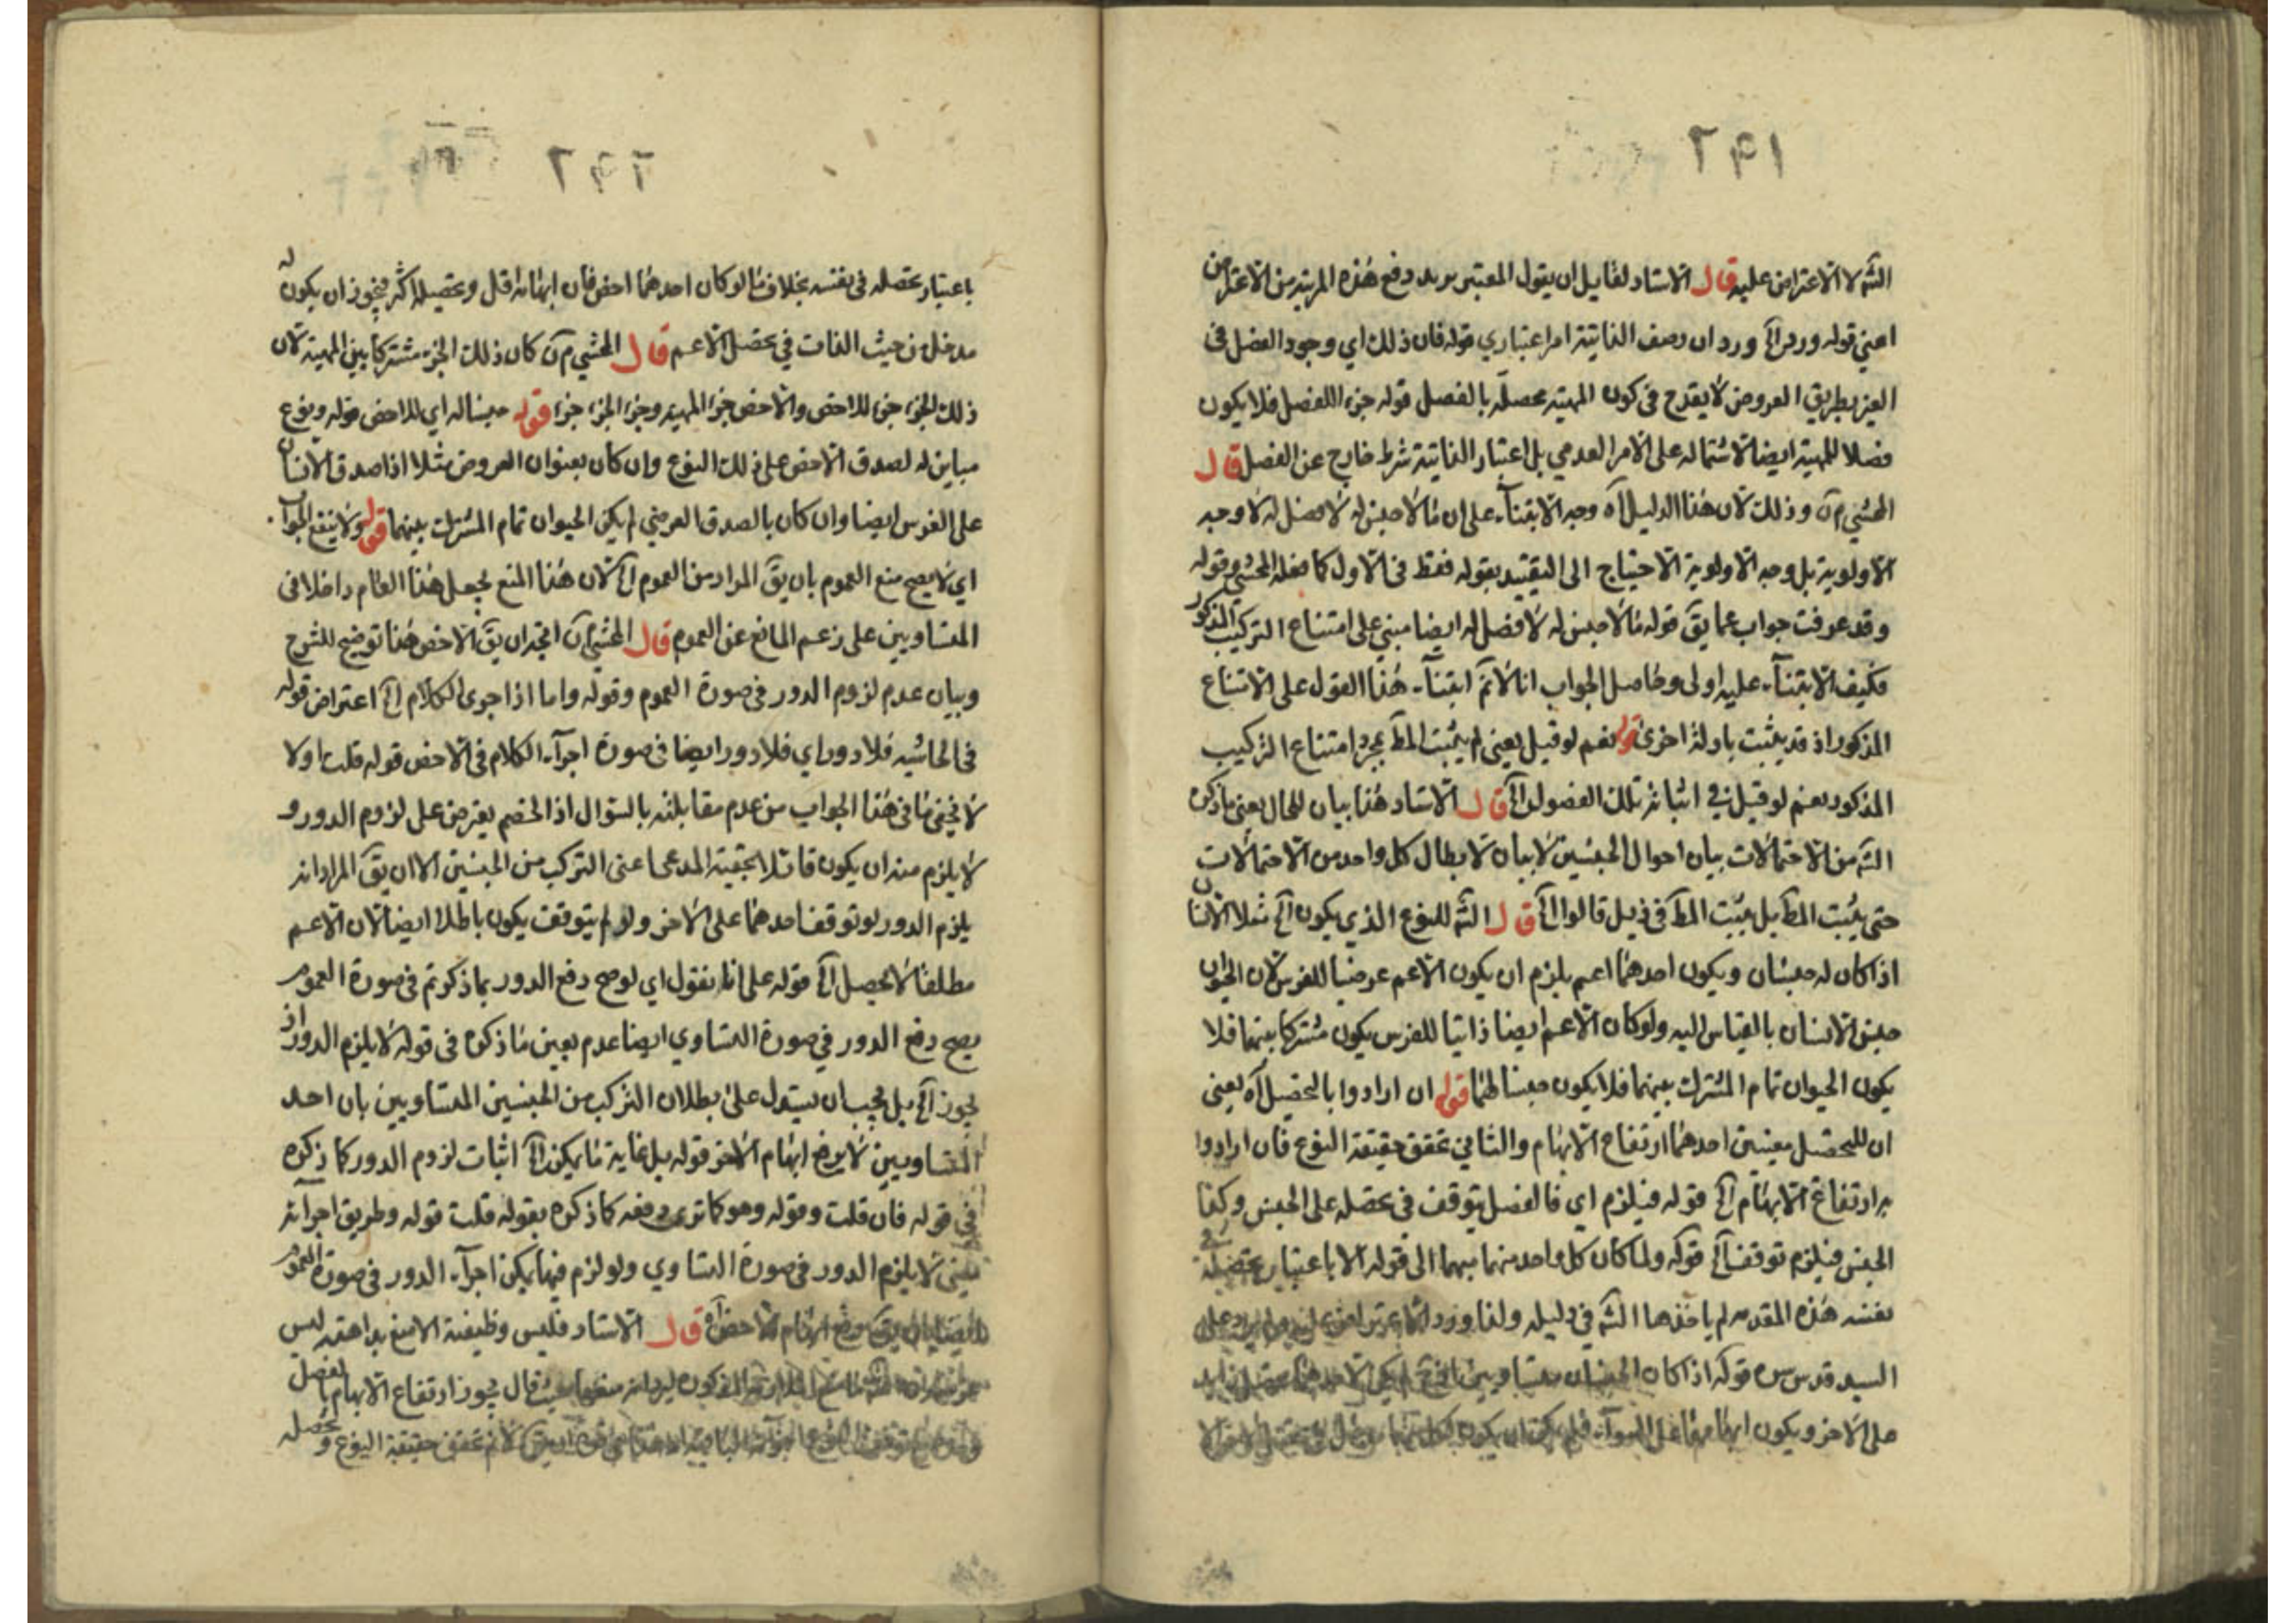 ٢٩١
الشه لا الاعتراض عليه قال الاستاد لقايل ان يقول المعتبر يريد دفع هذه المرتبة من الاعتراض
اعني قوله ورد اﻟﺦ ورد ان وصف الذاتية امر اعتباري قوله فان ذلك اي وجود الفصل في
الغير بطريق العروض لا يقدح في كون المهية محصلة بالفصل قوله جزء اللفصل فلا يكون
فصلا للمهية ايضا لاشتماله على الامر العدمي بل اعتبار الذاتية شرط خارج عن الفصل قال
المحشي م ن وذلك لان هذا الدليل اه وجه الابتناء على ان ما لا جنس له لا فصل له لا وجه
الاولوية بل وجه الاولوية الاحتياج الى التقييد بقوله فقط في الاول كما فعله المحشي وقوله
وقد عرفت جواب عما يق قوله ما لا جنس له لا فصل له ايضا مبني على امتناع التركيب المذكور
فكيف الابتناء عليه اولى وحاصل الجواب انا لا نم ابتناء هذا القول على الامتناع
المذكور اذ قد يثبت بادلة اخرى قوله نعم لو قيل يعني لم يثبت المط بمجرد امتناع التركيب
المذكور نعم لو قيل في اثبات تلك الفصول اﻟﺦ قال الاستاد هذا بيان للحال يعني ما ذكره
الشه من الاحتمالات بيان احوال الجنسين لا بيان لابطال كل واحد من الاحتمالات
حتى يثبت المط بل يثبت المط في ذيل قالوا اﻟﺦ قال الشه للنوع الذي يكون اﻟﺦ مثلا الانسان
اذا كان له جنسان ويكون احدهما اعم يلزم ان يكون الاعم عرضيا للفرس لان الحيوان
جنس الانسان بالقياس اليه ولو كان الاعم ايضا ذاتيا للفرس يكون مشتركا بينهما فلا
يكون الحيوان تمام المشترك بينهما فلا يكون جنسا لهما قوله ان ارادوا بالتحصيل اه يعني
ان للتحصل معنيين احدهما ارتفاع الابهام والثاني تحقق حقيقة النوع فان ارادوا
به ارتفاع الابهام اﻟﺦ قوله فيلزم اي فالفصل يتوقف في تحصله على الجنس وكذا
الجنس فيلزم توقف اﻟﺦ قوله ولما كان كل واحد منهما مبهما الى قوله الا باعتبار تحصله في
نفسه هذه المقدمه لم ياخذها الشه في دليله ولذا ورد
السيد قدس سره قوله اذا كان الجنسان متساويين
على الاخر ويكون ابهامهما على السواء
٢٩٢
باعتبار تحصله في نفسه بخلاف ما لو كان احدهما اخص فان ابهامه اقل وتحصيله اكثر فيجوز ان يكون له
مدخل من حيث الذات في تحصل الاعم قال المحشي م ن كان ذلك الجزء مشتركا بين المهية لان
ذلك الجزء جزء للاخص والاخص جزء المهية وجزء الجزء جزء قوله جنسا له اي للاخص قوله ونوع
مباين له لصدق الاخص على ذلك النوع وان كان بعنوان العروض مثلا اذا صدق الانسان
على الفرس ايضا وان كان بالصدق العرضي لم يكن الحيوان تمام المشترك بينهما قوله ولا ينفع الجواب
اي لا يصح منع العموم بان يق المراد من العموم اﻟﺦ لان هذا المنع يجعل هذا العام داخلا في
المتساويين على زعم المانع عن العموم قال المحشي م ن اتجه ان يق الاخص هذا توضيح للشرح
وبيان عدم لزوم الدور في صورة العموم وقوله واما اذا جرى الكلام اﻟﺦ اعتراض قوله
في الحاشيه فلا دور اي فلا دور ايضا في صورة اجراء الكلام في الاخص قوله قلت اولا
لا يخفى ما في هذا الجواب من عدم مقابلته بالسؤال اذ الخصم يعترض على لزوم الدور و
لا يلزم منه ان يكون قائلا بحقية المدعى اعني التركب من الجنسين الا ان يق المراد انه
يلزم الدور لو توقف احدهما على الاخر ولو لم يتوقف يكون باطلا ايضا لان الاعم
مطلقا لا تحصيل اﻟﺦ قوله على انا نقول اي لو صح دفع الدور بما ذكرتم في صورة العموم
يصح دفع الدور في صورة التساوي ايضا عدم بعين ما ذكره في قوله لا يلزم الدور اذ
يجوز اﻟﺦ بل يجب ان يستدل على بطلان التركب من الجنسين المتساويين بان احد
المتساويين لا يرفع ابهام الاخر قوله بل غاية ما يمكن اﻟﺦ اثبات لزوم الدور كما ذكره
في قوله فان قلت وقوله وهو كما ترى دفعه كما ذكره بقوله قلت قوله وطريق اجرائه
يعني لا يلزم الدور في صورة التساوي ولو لزم فيها يمكن اجراء الدور في صورة العموم
ايضا بان يق رفع ابهام الاخص اه قال الاستاد فليس وظيفته الا منع بداهته ليس
قال يجوز ارتفاع الابهام بالفصل
تحقق حقيقة النوع وتحصله